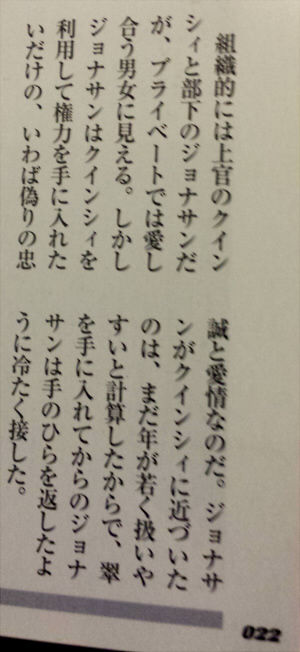 組織的には上官のクイン
シィと部下のジョナサンだ
が、プライベートでは愛し
合う男女に見える。しかし
ジョナサンはクインシィを
利用して権力を手に入れた
いだけの、いわば偽りの忠
誠と愛情なのだ。ジョナサ
ンがクインシィに近づいた
のは、まだ年が若く扱いや
すいと計算したからで、翠
を手に入れてからのジョナ
サンは手のひらを返したよ
うに冷たく接した。
022